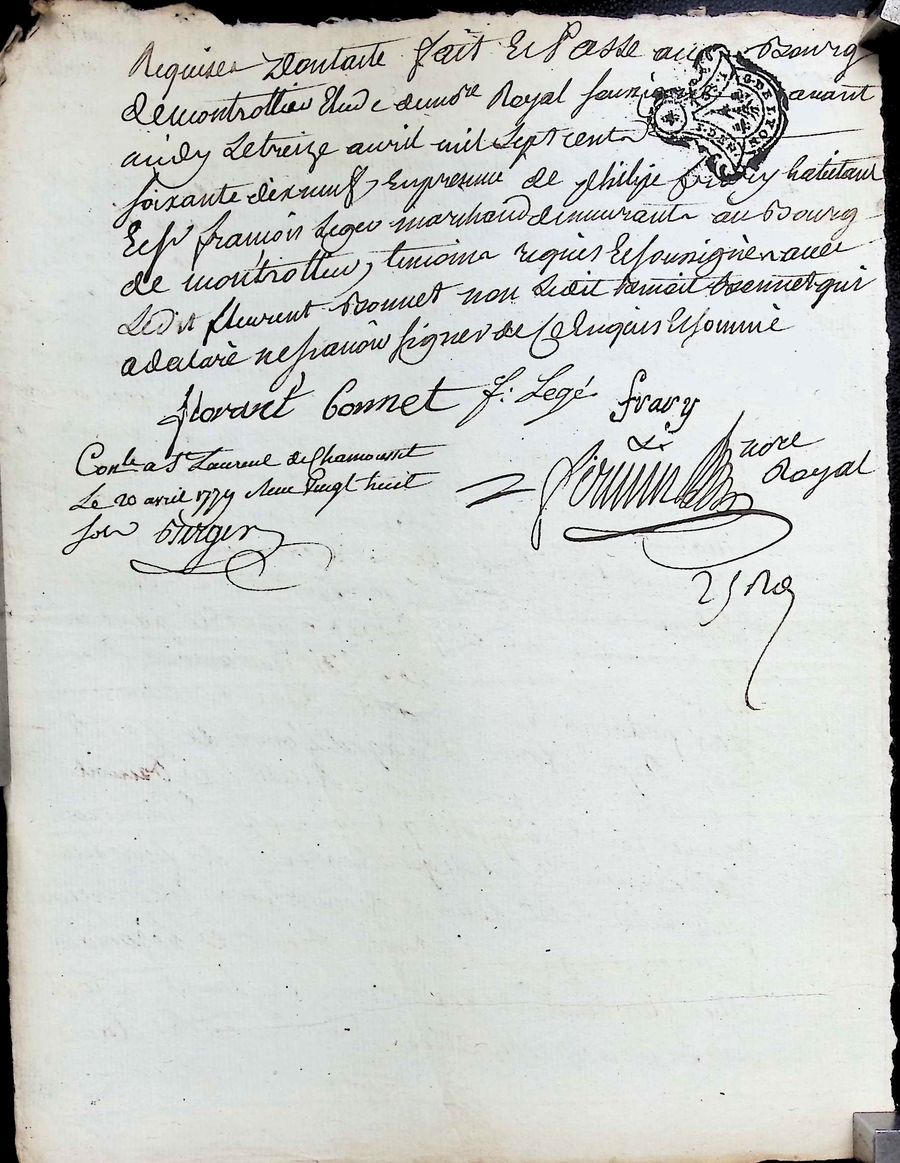 Requises Dontacte fait Et Passé au Bourg
demontrottier Etude dunore Royal soussigné avant
midy Letreize avril mil Sept cent
soixante dixneuf, Enpresence de philipe fravy habitant
Et Sr francois Leger marchand demeurant au Bourg
de montrottier, temoins requis Et soussignés avec
Ledit fleurent Bonnet non Ledit benoit Bonnet qui
adeclaré nescavoir signer de Ce Enquis Et sommé
florant bonnet f. Legé fravy
Conlé a St Laurent de Chamousset
Le 20 avril 1779 Reçu Vingt huit
sols
nore
Royal